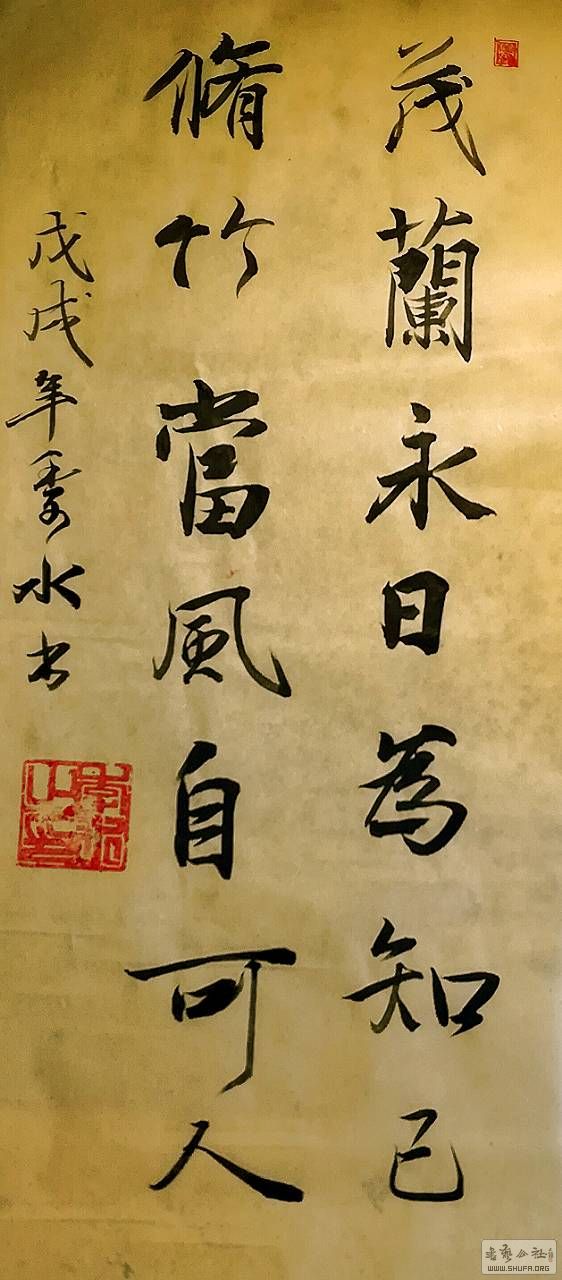 茂蘭永日為知己
脩竹當風自可人
戊戌年秀水书
书艺公社
WWW.SHUFA.ORG